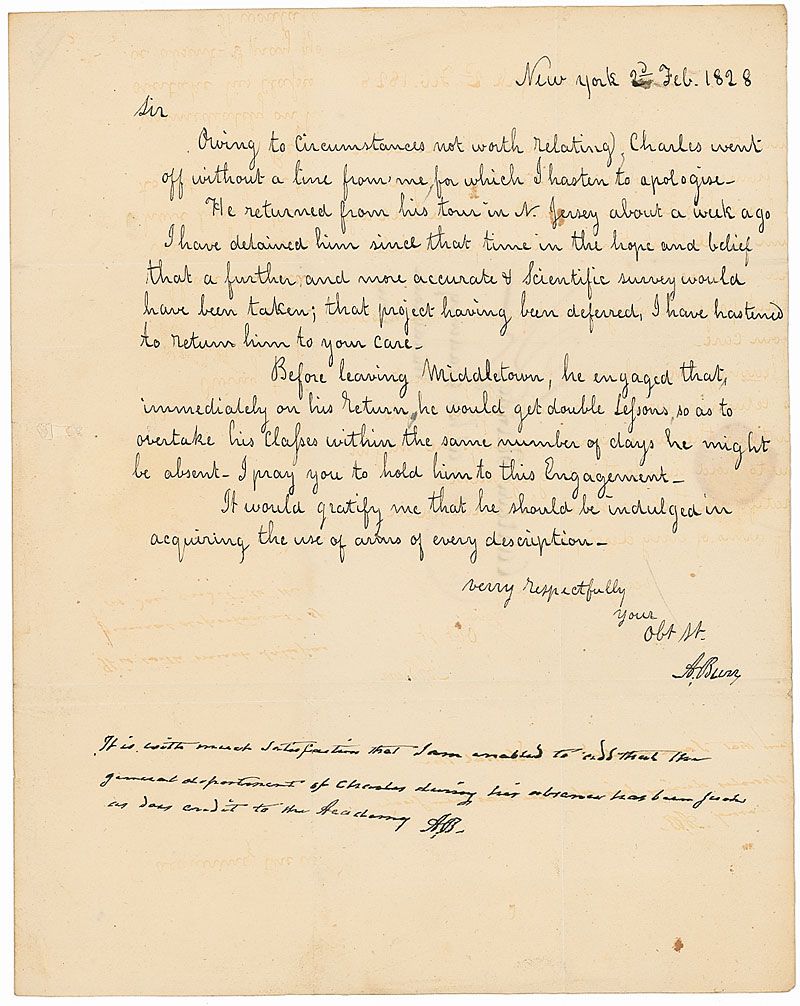 New York 2d Feb. 1828
Sir
Owing to Circumstances not worth relating, Charles went
off without a line from me, for which I hasten to apologise—
He returned from his tour in N. Jersey about a week ago
I have detained him since that time in the hope and belief
that a further and more accurate & Scientific survey would
have been taken; that project having been deferred, I have hastened
to return him to your care—
Before leaving Middletown, he engaged that,
immediately on his return, he would get double Lessons, so as to
overtake his Classes within the same number of days he might
be absent— I pray you to hold him to this Engagement—
It would gratify me that he should be indulged in
acquiring the use of arms of every description—
verry respectfully
your
Obt St.
A. Burr
It is with much Satisfaction that I am enabled to add that the
general deportment of Charles during his absence has been such
as does credit to the Academy A.B.